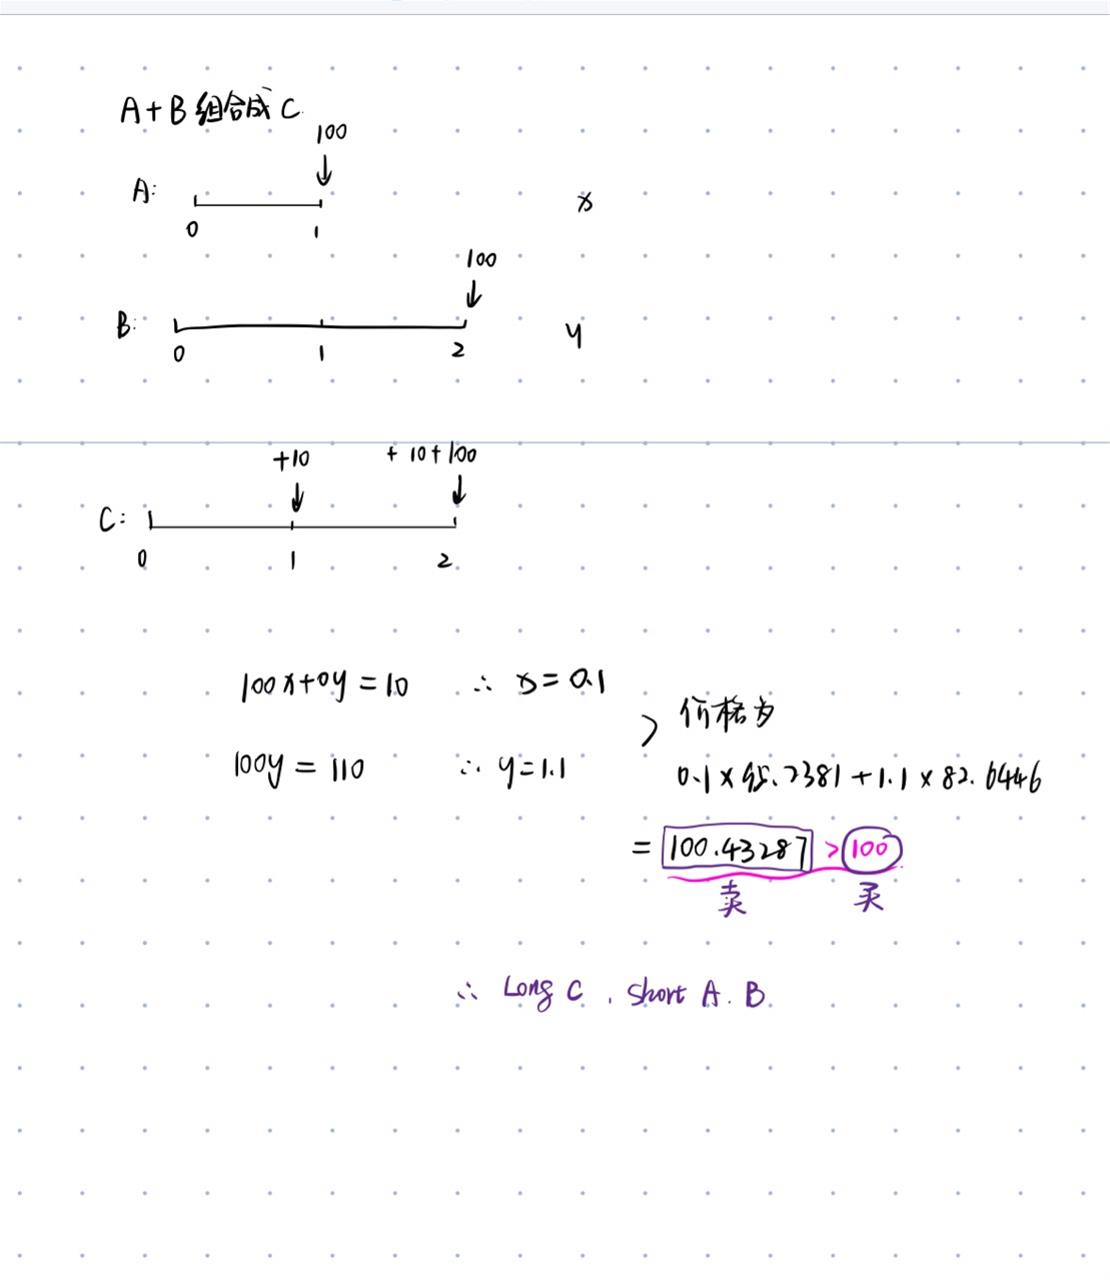 A+B 组合成 C
100
A:
0 1
x
100
B:
0 1 2
y
+10 + 10+100
C:
0 1 2
100x+0y=10 ∴ x=0.1
价格为
100y=110 ∴ y=1.1
0.1×95.2381+1.1×82.6446
=100.43287>100
卖 买
∴ Long C, short A. B.